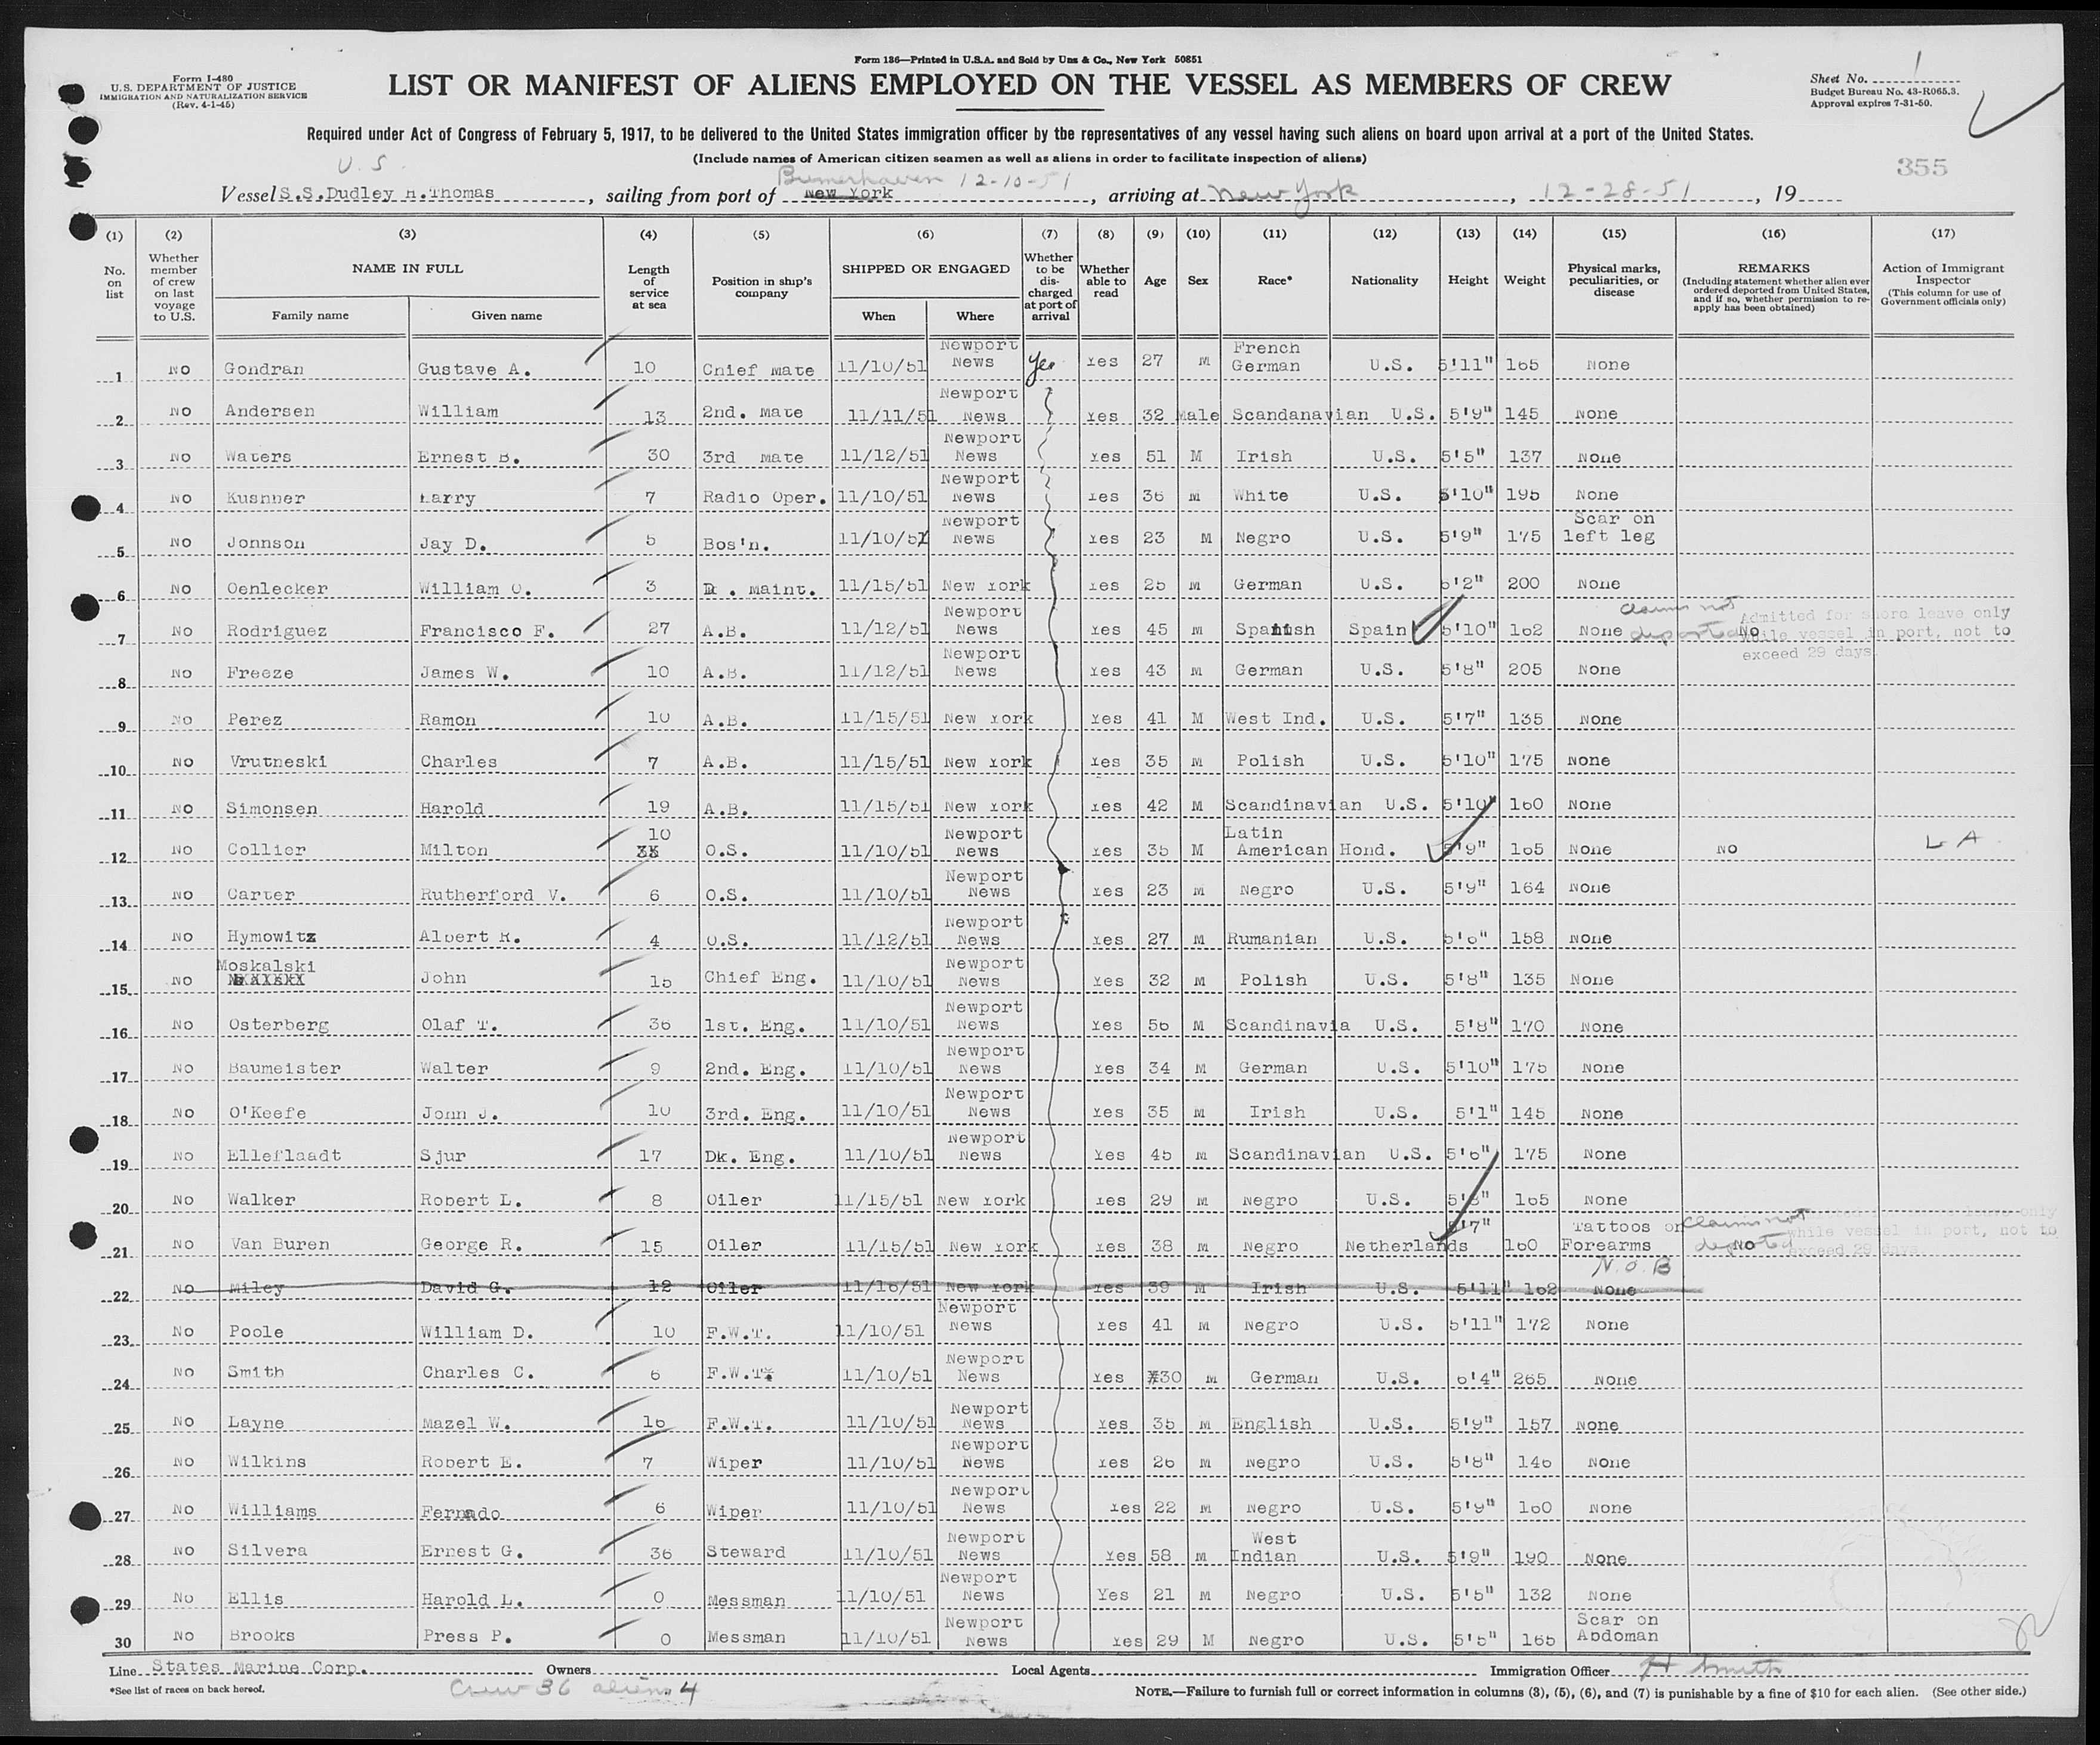 Form 136—Printed in U.S.A. and Sold by Unz & Co., New York 50851
Form I-480
U.S. DEPARTMENT OF JUSTICE
IMMIGRATION AND NATURALIZATION SERVICE
(Rev. 4-1-45)
LIST OR MANIFEST OF ALIENS EMPLOYED ON THE VESSEL AS MEMBERS OF CREW
Sheet No. 1
Budget Bureau No. 43-R065.3.
Approval expires 7-31-50.
Required under Act of Congress of February 5, 1917, to be delivered to the United States immigration officer by the representatives of any vessel having such aliens on board upon arrival at a port of the United States.
(Include names of American citizen seamen as well as aliens in order to facilitate inspection of aliens)
355
U.S.
Bremerhaven 12-10-51
Vessel S.S.Dudley H.Thomas, sailing from port of New York, arriving at New York, 12-28-51, 19
(1) (2) (3) (4) (5) (6) (7) (8) (9) (10) (11) (12) (13) (14) (15) (16) (17)
No. on list
Whether member of crew on last voyage to U.S.
NAME IN FULL
Family name Given name
Length of service at sea
Position in ship's company
SHIPPED OR ENGAGED
When Where
Whether to be discharged at port of arrival
Whether able to read
Age
Sex
Race*
Nationality
Height
Weight
Physical marks, peculiarities, or disease
REMARKS
(Including statement whether alien ever ordered deported from United States, and if so, whether permission to reapply has been obtained)
Action of Immigrant Inspector
(This column for use of Government officials only)
1 No Gondran Gustave A. 10 Chief Mate 11/10/51 Newport News Yes Yes 27 M French German U.S. 5'11" 165 None
2 No Andersen William 13 2nd. Mate 11/11/51 Newport News Yes 32 Male Scandanavian U.S. 5'9" 145 None
3 No Waters Ernest B. 30 3rd Mate 11/12/51 Newport News Yes 51 M Irish U.S. 5'5" 137 None
4 No Kushner Larry 7 Radio Oper. 11/10/51 Newport News Yes 36 M White U.S. 5'10" 195 None
5 No Johnson Jay D. 5 Bos'n. 11/10/51 Newport News Yes 23 M Negro U.S. 5'9" 175 Scar on left leg
6 No Oehlecker William O. 3 Dk. Maint. 11/15/51 New York Yes 25 M German U.S. 5'2" 200 None
7 No Rodriguez Francisco F. 27 A.B. 11/12/51 Newport News Yes 45 M Spanish Spain 5'10" 162 None claims not deported No Admitted for shore leave only while vessel in port, not to exceed 29 days
8 No Freeze James W. 10 A.B. 11/12/51 Newport News Yes 43 M German U.S. 5'8" 205 None
9 No Perez Ramon 10 A.B. 11/15/51 New York Yes 41 M West Ind. U.S. 5'7" 135 None
10 No Vrutneski Charles 7 A.B. 11/15/51 New York Yes 35 M Polish U.S. 5'10" 175 None
11 No Simonsen Harold 19 A.B. 11/15/51 New York Yes 42 M Scandinavian U.S. 5'10" 160 None
12 No Collier Milton 10 O.S. 11/10/51 Newport News Yes 35 M Latin American Hond. 5'9" 165 None No L A
13 No Carter Rutherford V. 6 O.S. 11/10/51 Newport News Yes 23 M Negro U.S. 5'9" 164 None
14 No Hymowitz Albert R. 4 O.S. 11/12/51 Newport News Yes 27 M Rumanian U.S. 5'6" 158 None
15 No Moskalski John 15 Chief Eng. 11/10/51 Newport News Yes 32 M Polish U.S. 5'8" 135 None
16 No Osterberg Olaf T. 36 1st. Eng. 11/10/51 Newport News Yes 56 M Scandinavia U.S. 5'8" 170 None
17 No Baumeister Walter 9 2nd. Eng. 11/10/51 Newport News Yes 34 M German U.S. 5'10" 175 None
18 No O'Keefe John J. 10 3rd. Eng. 11/10/51 Newport News Yes 35 M Irish U.S. 5'1" 145 None
19 No Elleflaadt Sjur 17 Dk. Eng. 11/10/51 Newport News Yes 45 M Scandinavian U.S. 5'6" 175 None
20 No Walker Robert L. 8 Oiler 11/15/51 New York Yes 29 M Negro U.S. 5'8" 165 None
21 No Van Buren George R. 15 Oiler 11/15/51 New York Yes 38 M Negro Netherlands 5'7" 160 Tattoos on Forearms claims not deported No while vessel in port, not to exceed 29 days
22 No Miley David G. 12 Oiler 11/16/51 New York Yes 39 M Irish U.S. 5'11" 162 None N.O.B
23 No Poole William D. 10 F.W.T. 11/10/51 Newport News Yes 41 M Negro U.S. 5'11" 172 None
24 No Smith Charles C. 6 F.W.T. 11/10/51 Newport News Yes 30 M German U.S. 6'4" 265 None
25 No Layne Mazel W. 16 F.W.T. 11/10/51 Newport News Yes 35 M English U.S. 5'9" 157 None
26 No Wilkins Robert E. 7 Wiper 11/10/51 Newport News Yes 26 M Negro U.S. 5'8" 146 None
27 No Williams Fernado 6 Wiper 11/10/51 Newport News Yes 22 M Negro U.S. 5'9" 160 None
28 No Silvera Ernest G. 36 Steward 11/10/51 Newport News Yes 58 M West Indian U.S. 5'9" 190 None
29 No Ellis Harold L. 0 Messman 11/10/51 Newport News Yes 21 M Negro U.S. 5'5" 132 None
30 No Brooks Press P. 0 Messman 11/10/51 Newport News Yes 29 M Negro U.S. 5'5" 165 Scar on Abdoman
Line States Marine Corp. Owners Local Agents Immigration Officer H Smith
*See list of races on back hereof.
Crew 36 aliens 4
NOTE.—Failure to furnish full or correct information in columns (3), (5), (6), and (7) is punishable by a fine of $10 for each alien. (See other side.)